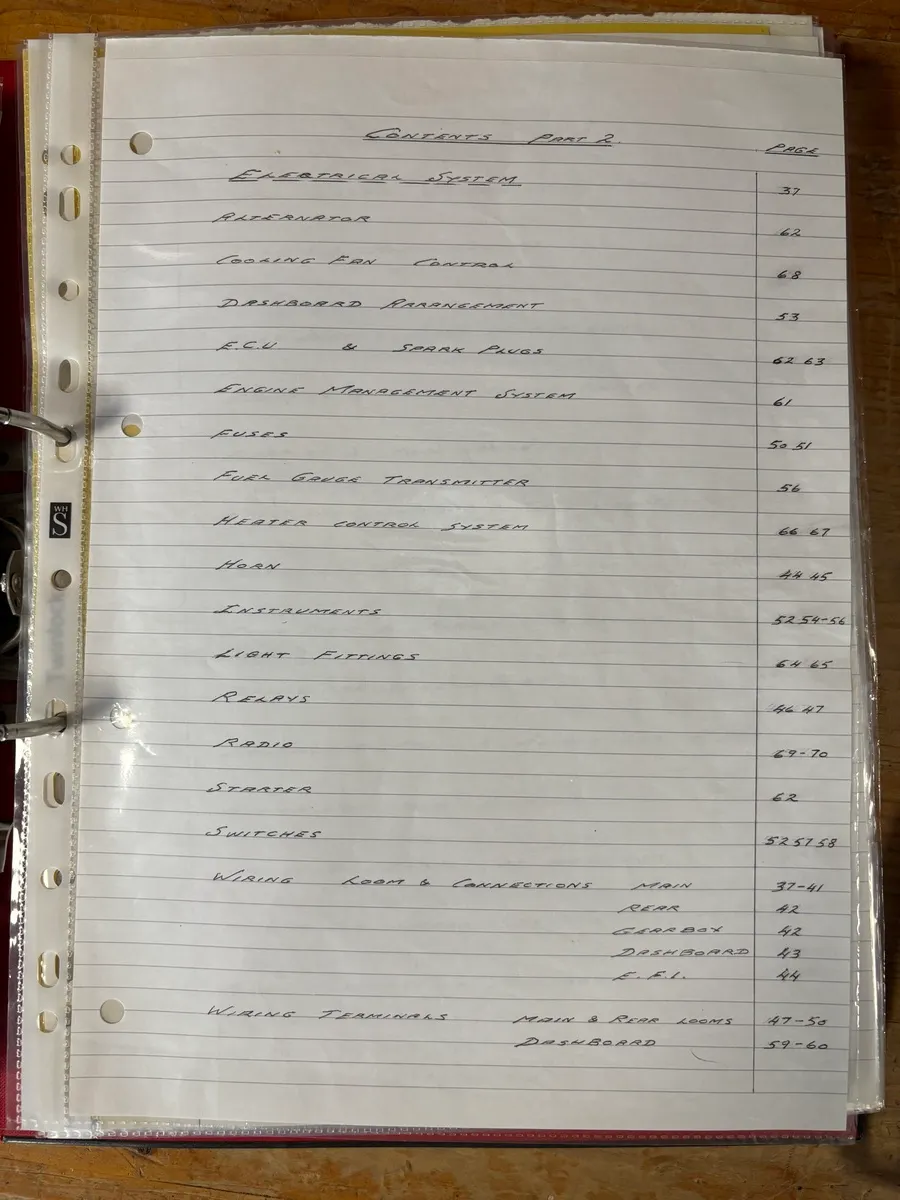 CONTENTS PART 2.
PAGE
ELECTRICAL SYSTEM 37
ALTERNATOR 62
COOLING FAN CONTROL 68
DASHBOARD ARRANGEMENT 53
E.C.U & SPARK PLUGS 62 63
ENGINE MANAGEMENT SYSTEM 61
FUSES 50 51
FUEL GAUGE TRANSMITTER 56
HEATER CONTROL SYSTEM 66 67
HORN 44 45
INSTRUMENTS 52 54-56
LIGHT FITTINGS 64 65
RELAYS 46 47
RADIO 69-70
STARTER 62
SWITCHES 52 57 58
WIRING LOOM & CONNECTIONS MAIN 37-41
REAR 42
GEARBOX 42
DASHBOARD 43
E.F.I. 44
WIRING TERMINALS MAIN & REAR LOOMS 47-50
DASHBOARD 59-60
WH
S